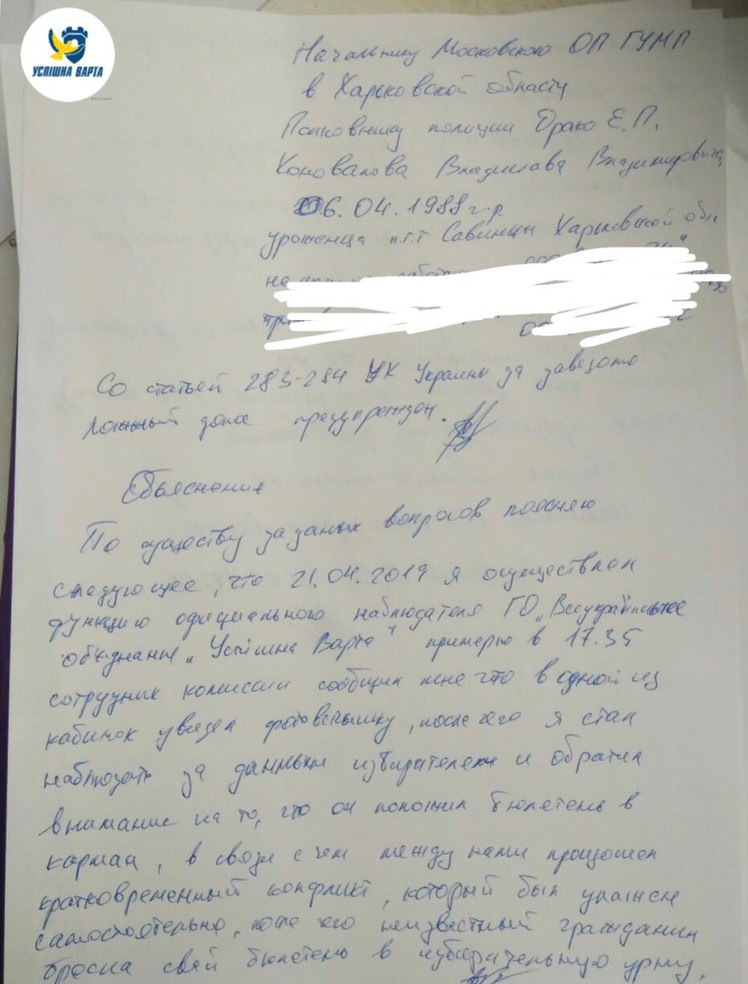 УСПІШНА ВАРТА
Начальнику Московского ОП ГУНП
в Харьковской области
Полковнику полиции Драко Е.П.
Коновалова Владислава Владимировича
06.04.1988 г.р.
уроженца п.г.т Савинцы Харьковской обл
Со статьей 283-284 УК Украины за заведомо
ложный донос предупрежден.
Объяснение
По существу заданых вопросов поясняю
следующее, что 21.04.2019 я осуществлял
функцию официального наблюдателя ГО "Всеукраїнське
обєднання "Успішна Варта" примерно в 17.35
сотрудник комиссии сообщил мне что в одной из
кабинок увидел фотовспышку, после чего я стал
наблюдать за данным избирателем и обратил
внимание на то, что он положил бюлетень в
карман, в связи с чем между нами произошел
кратковременный конфликт, который был улажен
самостоятельно, после чего неизвестный гражданин
бросил свой бюлетень в избирательную урну.